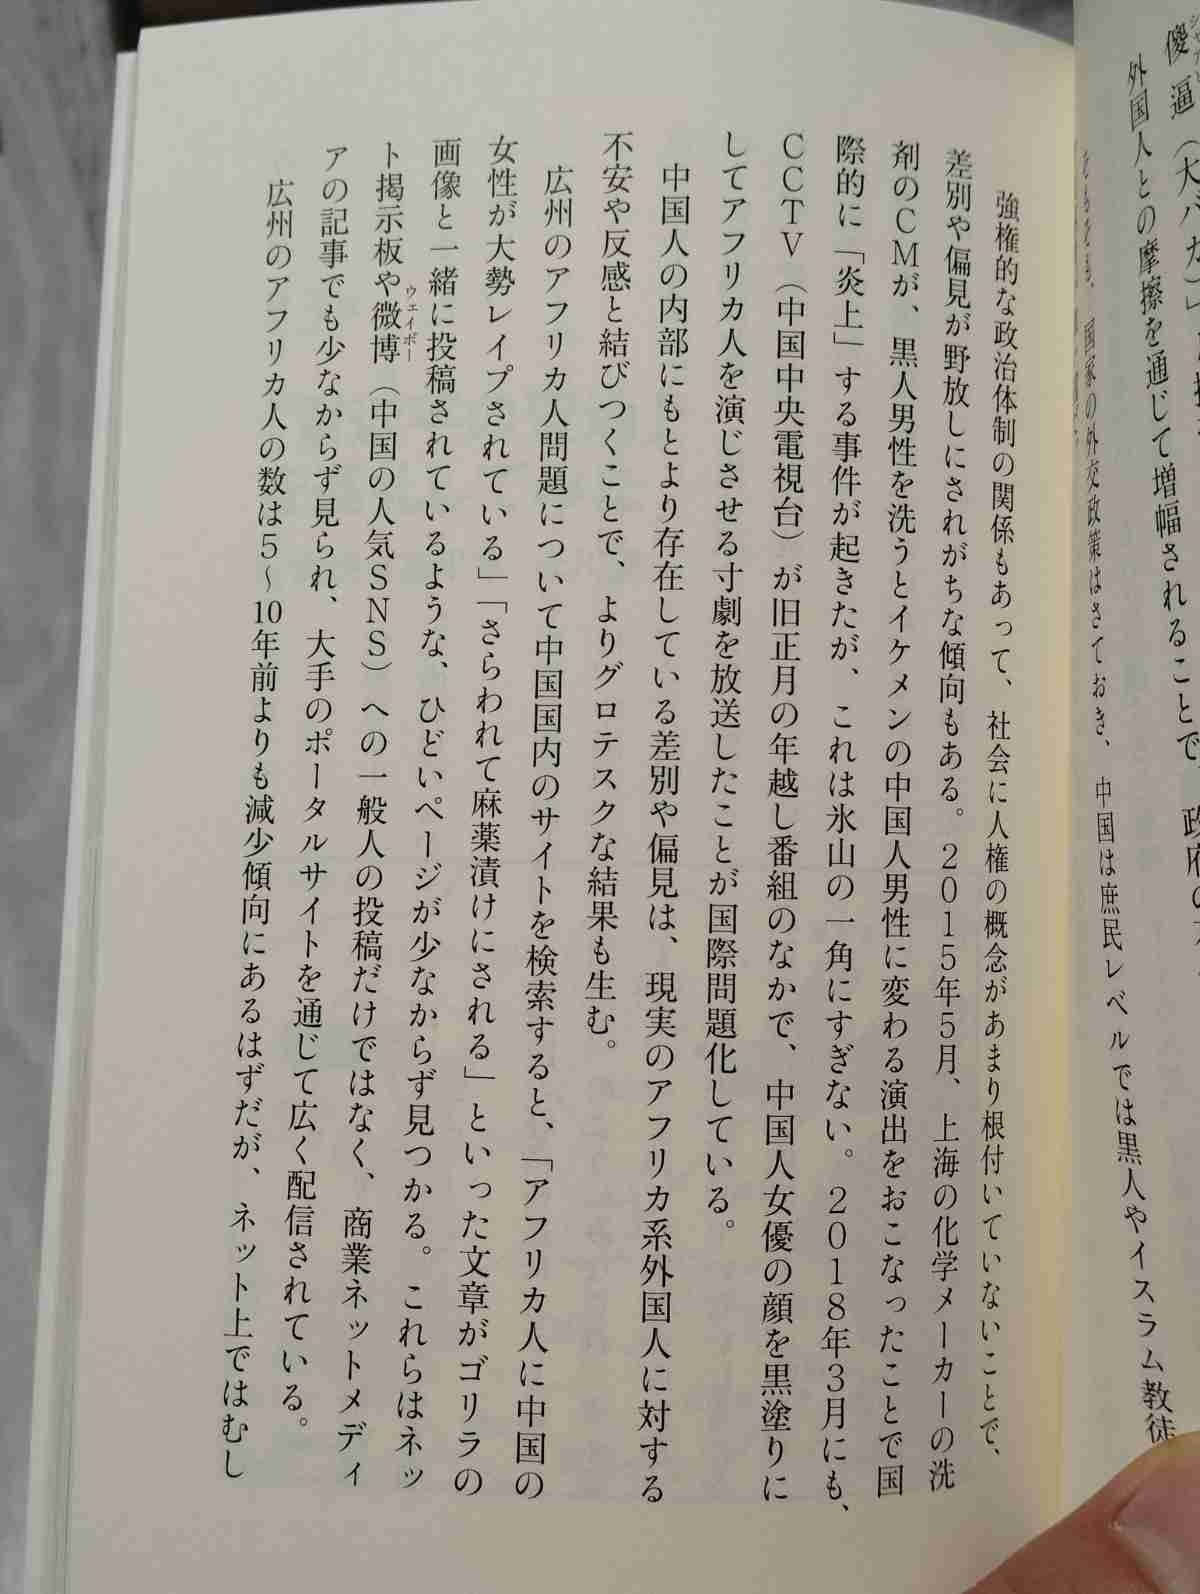 傻逼（大バカ）」
外国人との摩擦を通じて増幅されることで、政府の
国家の外交政策はさておき、中国は庶民レベルでは黒人やイスラム教徒
強権的な政治体制の関係もあって、社会に人権の概念があまり根付いていないことで、
差別や偏見が野放しにされがちな傾向もある。２０１５年５月、上海の化学メーカーの洗
剤のＣＭが、黒人男性を洗うとイケメンの中国人男性に変わる演出をおこなったことで国
際的に「炎上」する事件が起きたが、これは氷山の一角にすぎない。２０１８年３月にも、
ＣＣＴＶ（中国中央電視台）が旧正月の年越し番組のなかで、中国人女優の顔を黒塗りに
してアフリカ人を演じさせる寸劇を放送したことが国際問題化している。
中国人の内部にもとより存在している差別や偏見は、現実のアフリカ系外国人に対する
不安や反感と結びつくことで、よりグロテスクな結果も生む。
広州のアフリカ人問題について中国国内のサイトを検索すると、「アフリカ人に中国の
女性が大勢レイプされている」「さらわれて麻薬漬けにされる」といった文章がゴリラの
画像と一緒に投稿されているような、ひどいページが少なからず見つかる。これらはネッ
ト掲示板や微博（中国の人気ＳＮＳ）への一般人の投稿だけではなく、商業ネットメディ
ウェイボー
アの記事でも少なからず見られ、大手のポータルサイトを通じて広く配信されている。
広州のアフリカ人の数は５～10年前よりも減少傾向にあるはずだが、ネット上ではむし